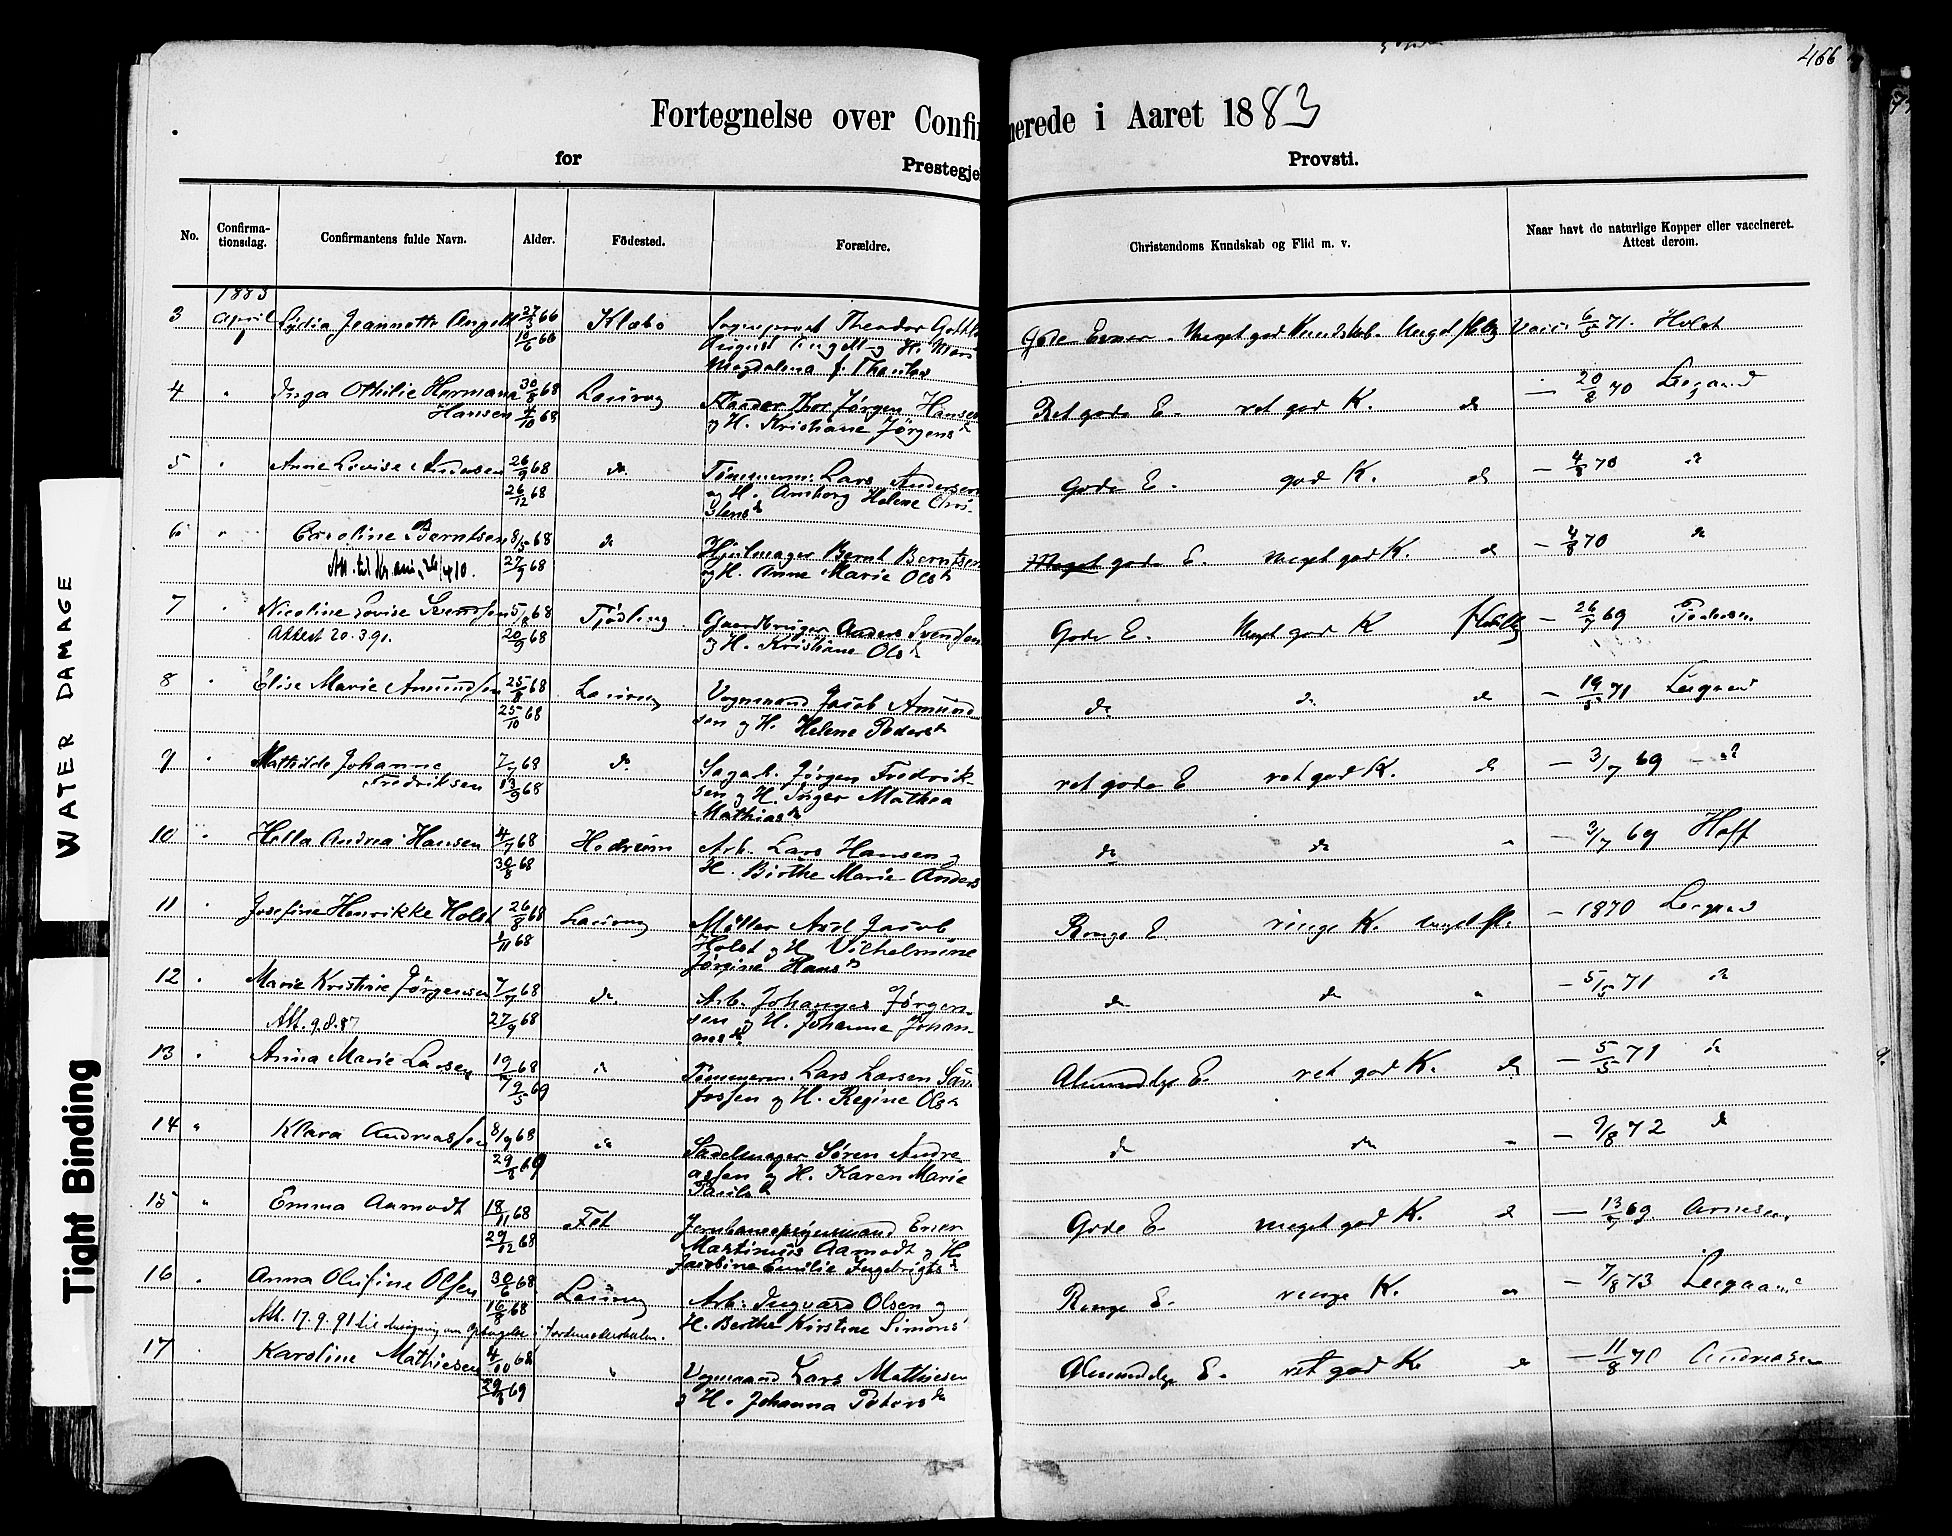 466
Fortegnelse over Confirmerede i Aaret 1883
for Prestegje Provsti.
No. Confirma-tionsdag. Confirmantens fulde Navn. Alder. Födested. Forældre. Christendoms Kundskab og Flid m. v. Naar havt de naturlige Kopper eller vaccineret. Attest derom.
1883
3 April 1 Lydia Jeannette Angell 27/3 66 Klæbo Sogneprest Theodor Gottl
10/6 66 August Angell og H. Mar
Magdalena f.
Gode Evner. Meget god Kundskab. Meget flittig Vacc. 6/5 71. Holst
4 " Inga Othilie Hermana 30/8 68 Laurvig Jørgen Hansen
Hansen 4/10 68 og H. Kristiane Jørgensd
Ret gode E. ret god K. do — 20/8 70 Leegaard
5 " Anne Lovise Andersen 26/9 68 do Tömmerm. Lars Andersen
26/12 68 og H. Amborg Helene Chri-
stensd
Gode E. god K. do — 4/8 70 do
6 " Caroline Berntsen 8/5 68 do Hjulmager Bernt Berntsen
27/9 68 og H. Anne Marie Olsd
Meget gode E. meget god K. do — 4/8 70 do
7 " Nicoline Lovise Svendsen 5/8 68 Tjödling Gaardbruger Anders Svendsen
Attest 20.3.91. 20/9 68 og H. Kristiane Olsd
Gode E. Meget god K flittig — 26/7 69 Pedersen
8 " Elise Marie Amundsen 25/8 68 Laurvig Vognmand Jacob Amund-
25/10 68 sen og H. Helene Pedersd
do do do — 19/5 71 Leegaard
9 " Mathilde Johanne 7/7 68 do Sagarb. Jørgen Fredrik-
Fredriksen 13/9 68 sen og H. Inger Mathea
Mathiasd
ret gode E ret god K. do — 3/7 69 — do
10 " Hella Andrea Hansen 4/7 68 Hedrum Arb. Lars Hansen og
30/8 68 H. Birthe Marie Anders
do do " — 3/7 69 Hoff
11 " Josefine Henrikke Holst 26/8 68 Laurvig Möller Ard Jacob
1/11 68 Holst og H. Vilhelmine
Jørgine Hansd
Ringe E. ringe K. meget fl. — 1870 Leegaard
12 " Marie Kristine Jørgensen 7/7 68 do Arb. Johannes Jørgen-
Att. 9.8.87 27/9 68 sen og H. Johanne Johan-
nesd
do do " — 5/5 71 do
13 " Anna Marie Larsen 19/7 68 do Tömmerm. Lars Larsen
9/5 69 og H. Regine Olsd
Almindelige E. ret god K. do — 5/5 71 do
14 " Klara Andreassen 8/9 68 do Sadelmager Søren Andre-
69 assen og H. Karen Marie
Paulsd
do do " — 9/8 72 do
15 " Emma Aamodt 18/11 68 Fet Einer
29/12 68 Martinius Aamodt og H
Jacobine Emilie Ingebrigtsd
Gode E. meget god K. do — 13/7 69 Arnesen
16 " Anna Olufine Olsen 30/6 68 Laurvig Arb. Ingvard Olsen og
16/8 68 H. Berthe Kirstine Simons
Att. 17.9.91 til
Ringe E. ringe K. " — 7/8 73 Leegaard
17 " Karoline Mathiesen 4/10 68 " Vognmand Lars Mathiesen
69 og H. Johanna Petersd
Almindelige E. ret god K. do — 11/8 70 Andreasen
WATER DAMAGE
Tight Binding